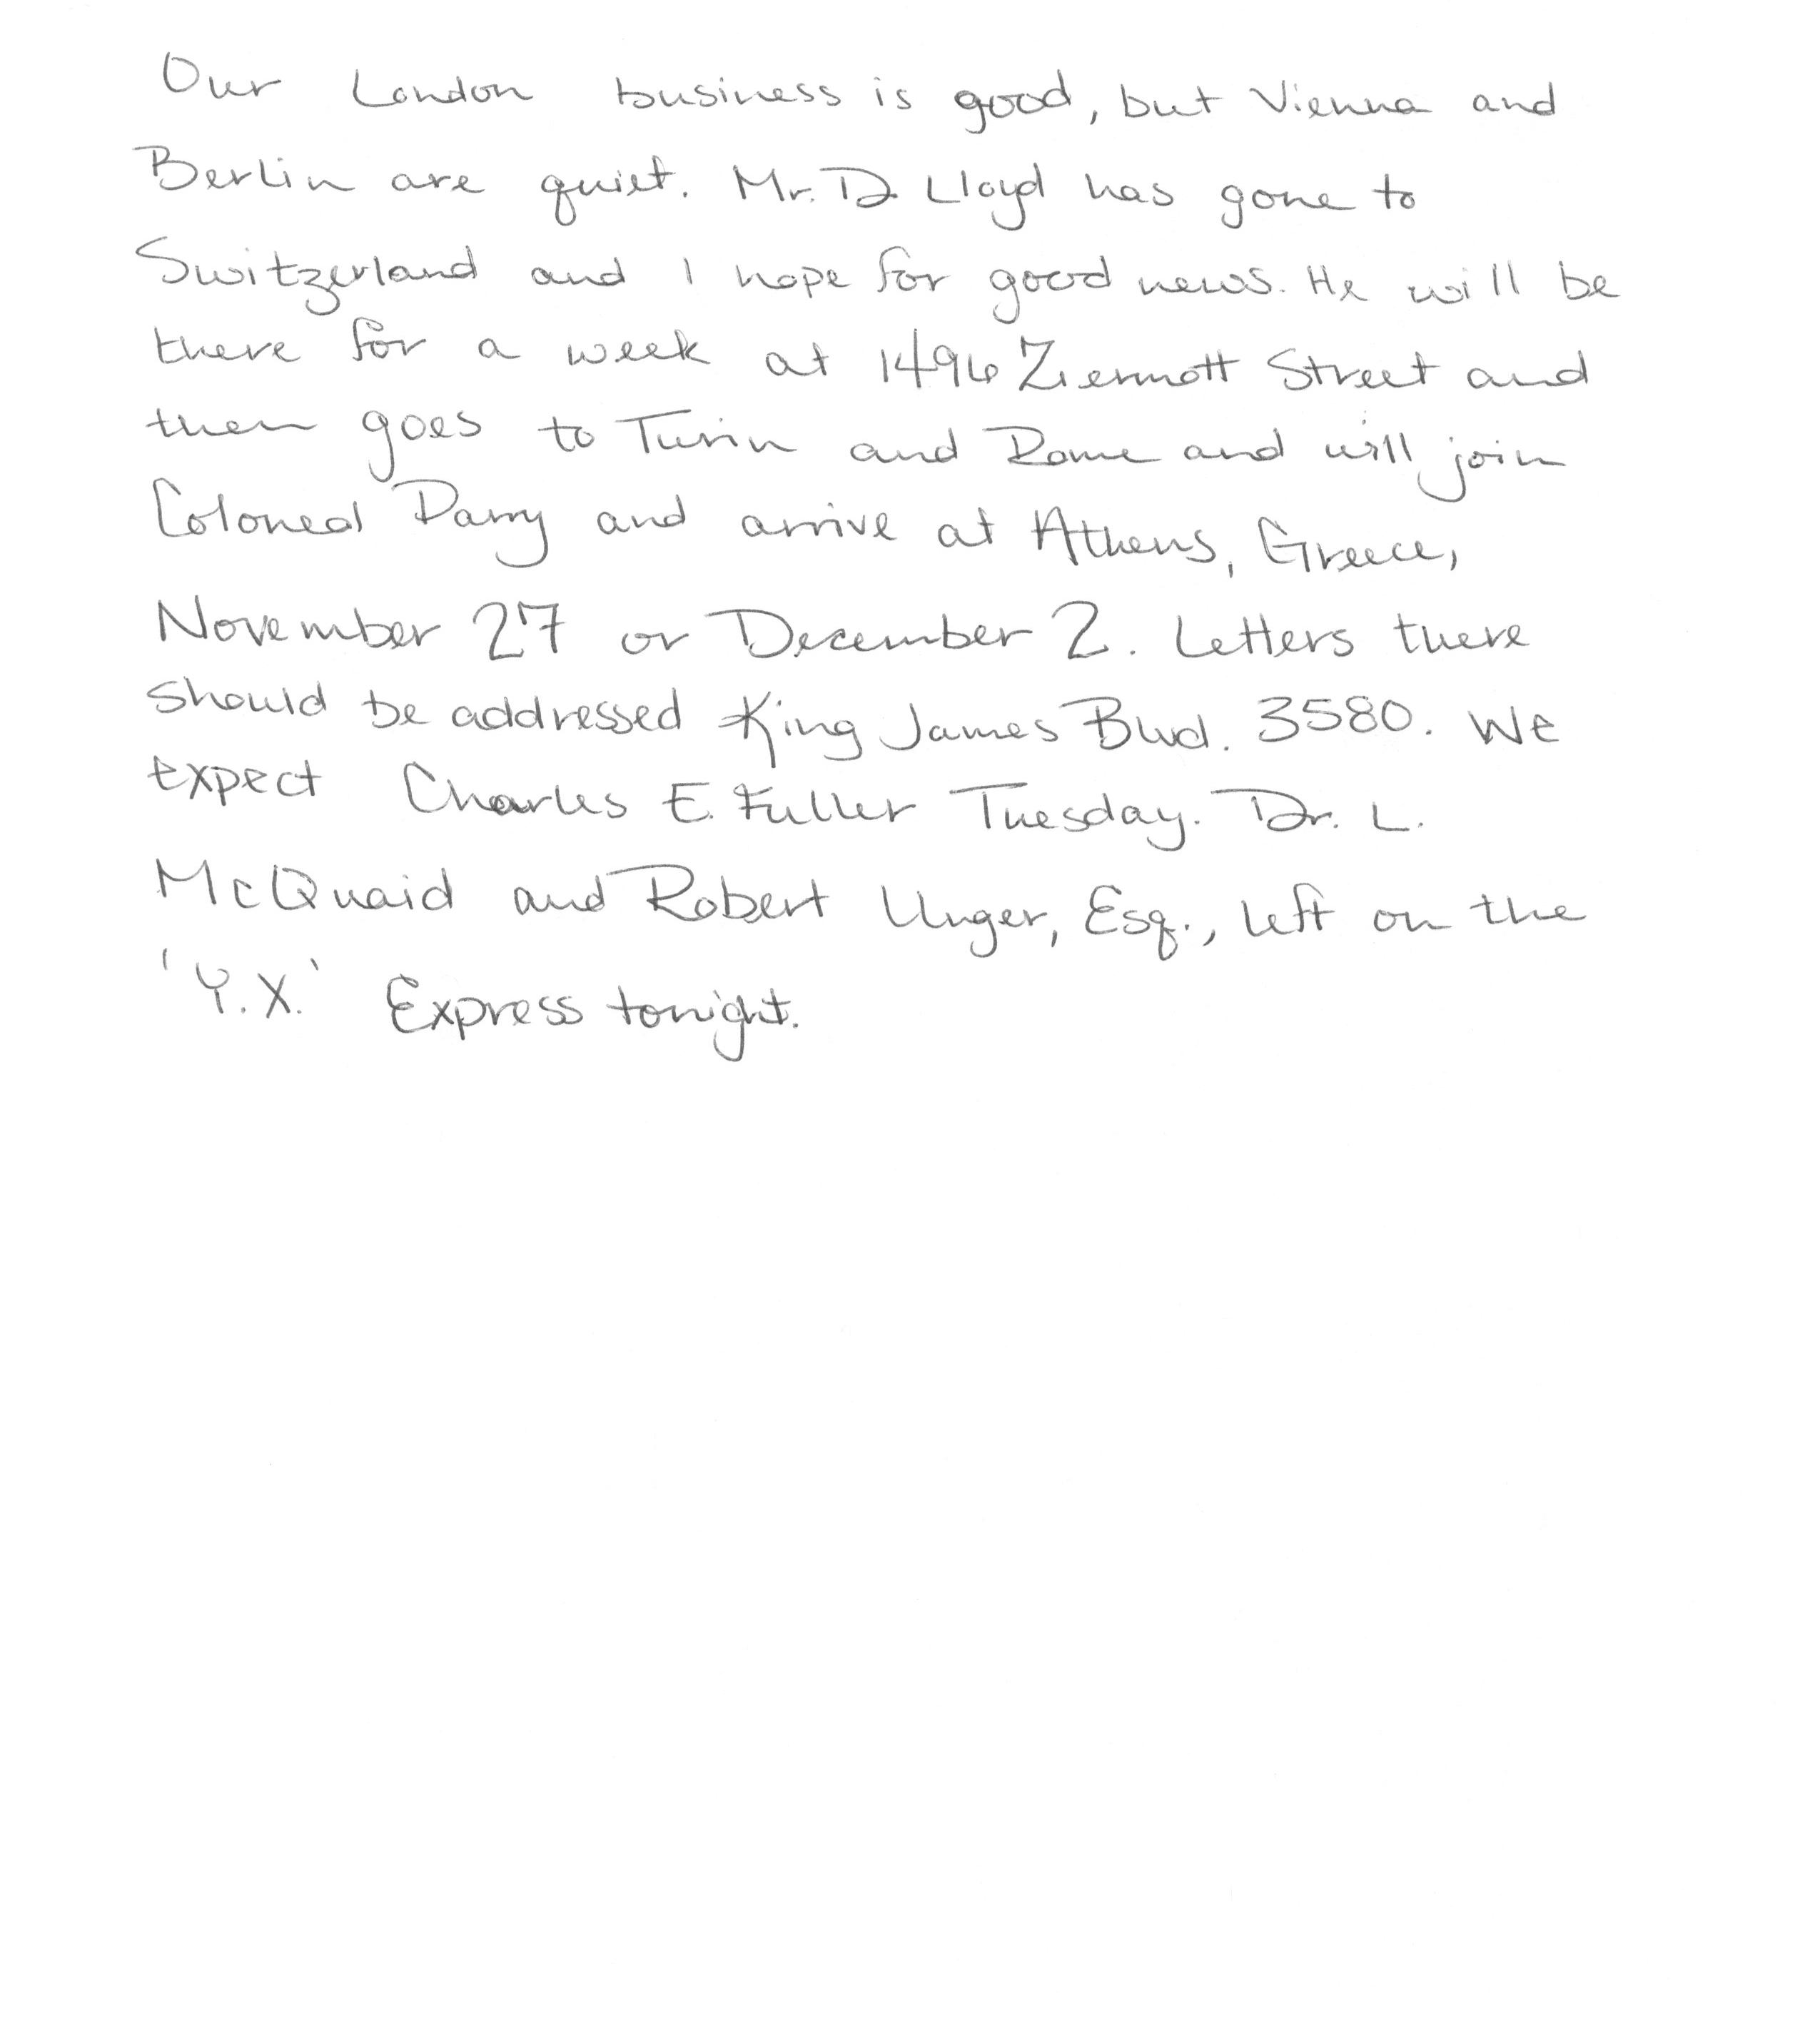 Our London business is good, but Vienna and
Berlin are quiet. Mr. D. Lloyd has gone to
Switzerland and I hope for good news. He will be
there for a week at 1496 Ziermott Street and
then goes to Turin and Rome and will join
Colonel Parry and arrive at Athens, Greece,
November 27 or December 2. Letters there
should be addressed King James Blvd. 3580. We
expect Charles E. Fuller Tuesday. Dr. L.
McQuaid and Robert Unger, Esq., left on the
'Y.X.' Express tonight.